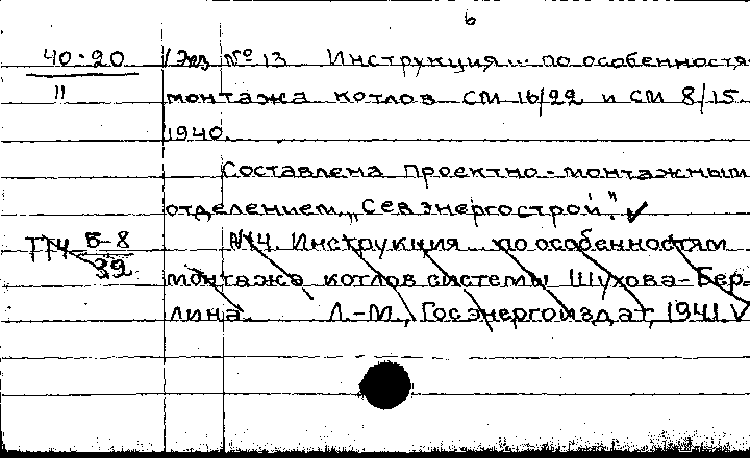 6
40-20 / 1 Экз № 13 Инструкция по особенностя
11 монтажа котлов СМ 16/22 и СМ 8/15
1940.
Составлена проектно-монтажным
отделением „Севэнергострой."
Б-8 №14. Инструкция по особенностям
39 монтажа котлов системы Шухова-Бер-
лина. Л.-М., Госэнергоиздат, 1941.